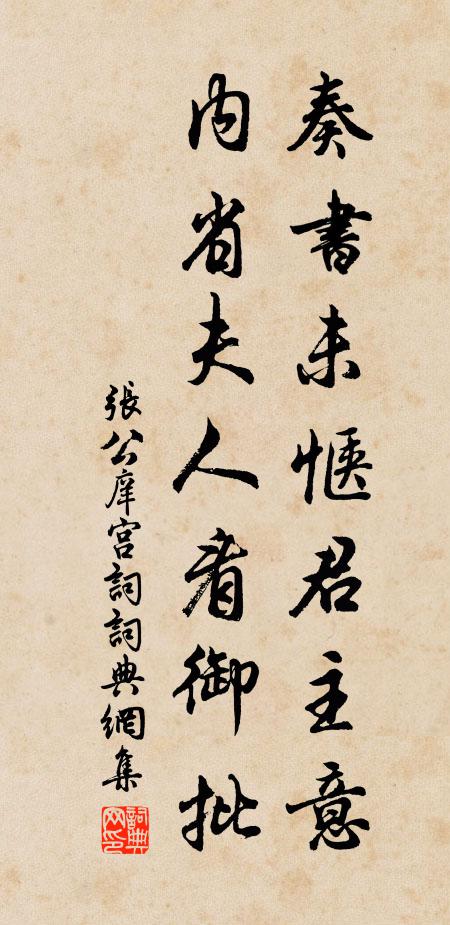 奏書未愜君主意
內省夫人看御批
張公庠宮詞詞典網集
詞典網印